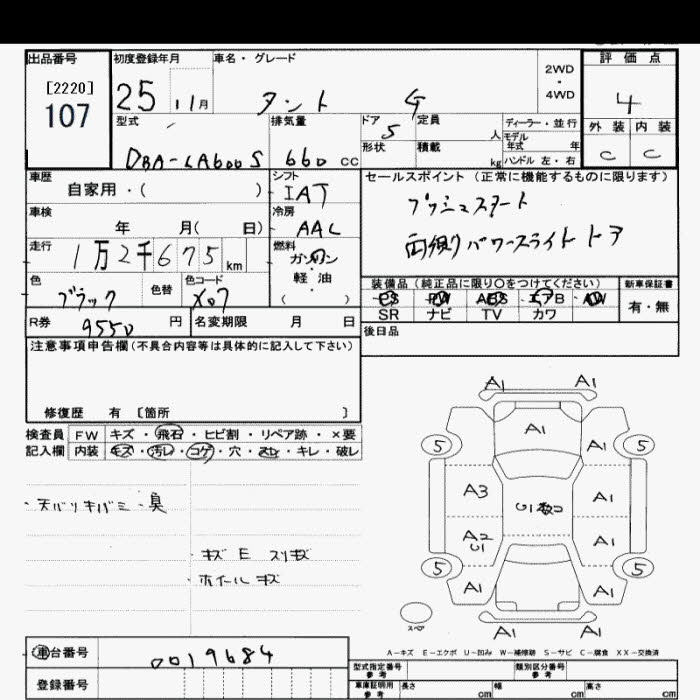 出品番号 初度登録年月 車名・グレード 評価点
[2220]
107
25 11月 タント G 2WD・4WD 4
型式 排気量 ドア 定員 ディーラー・並行 外装 内装
DBA-LA600S 660 CC 5 人 モデル年式 年 C C
形状 積載 kg ハンドル 左・右
車歴 シフト セールスポイント (正常に機能するものに限ります)
自家用・( ) IAT プッシュスタート
車検 冷房
年 月( 日) AAC 両側パワースライドドア
走行 燃料
1万2千675km ガソリン・軽油 ( )
色 色替 色コード 装備品 (純正品に限り○をつけてください) 新車保証書
ブラック X07 PS PW ABS エアB AW 有・無
SR ナビ TV カワ
R券 9550 円 名変期限 月 日 後日品
注意事項申告欄(不具合内容等は具体的に記入して下さい)
修復歴 有 [箇所 ]
検査員 FW キズ・飛石・ヒビ割・リペア跡・×要
記入欄 内装 キズ・汚レ・コゲ・穴・スレ・キレ・破レ
・天バリキバミ・臭
・キズ E スリキズ
・ホイールキズ
A1 A1
A1
5 A1 5
A3 A1
A2 A1
U1
5 A1 A1 5
スペア A1 A1
A-キズ E-エクボ U-凹み W-補修跡 S-サビ C-腐食 XX-交換済
車台番号 0019684
登録番号
型式指定番号 参考 類別区分番号 参考
車庫証明用 参考 長さ cm 幅 cm 高さ cm